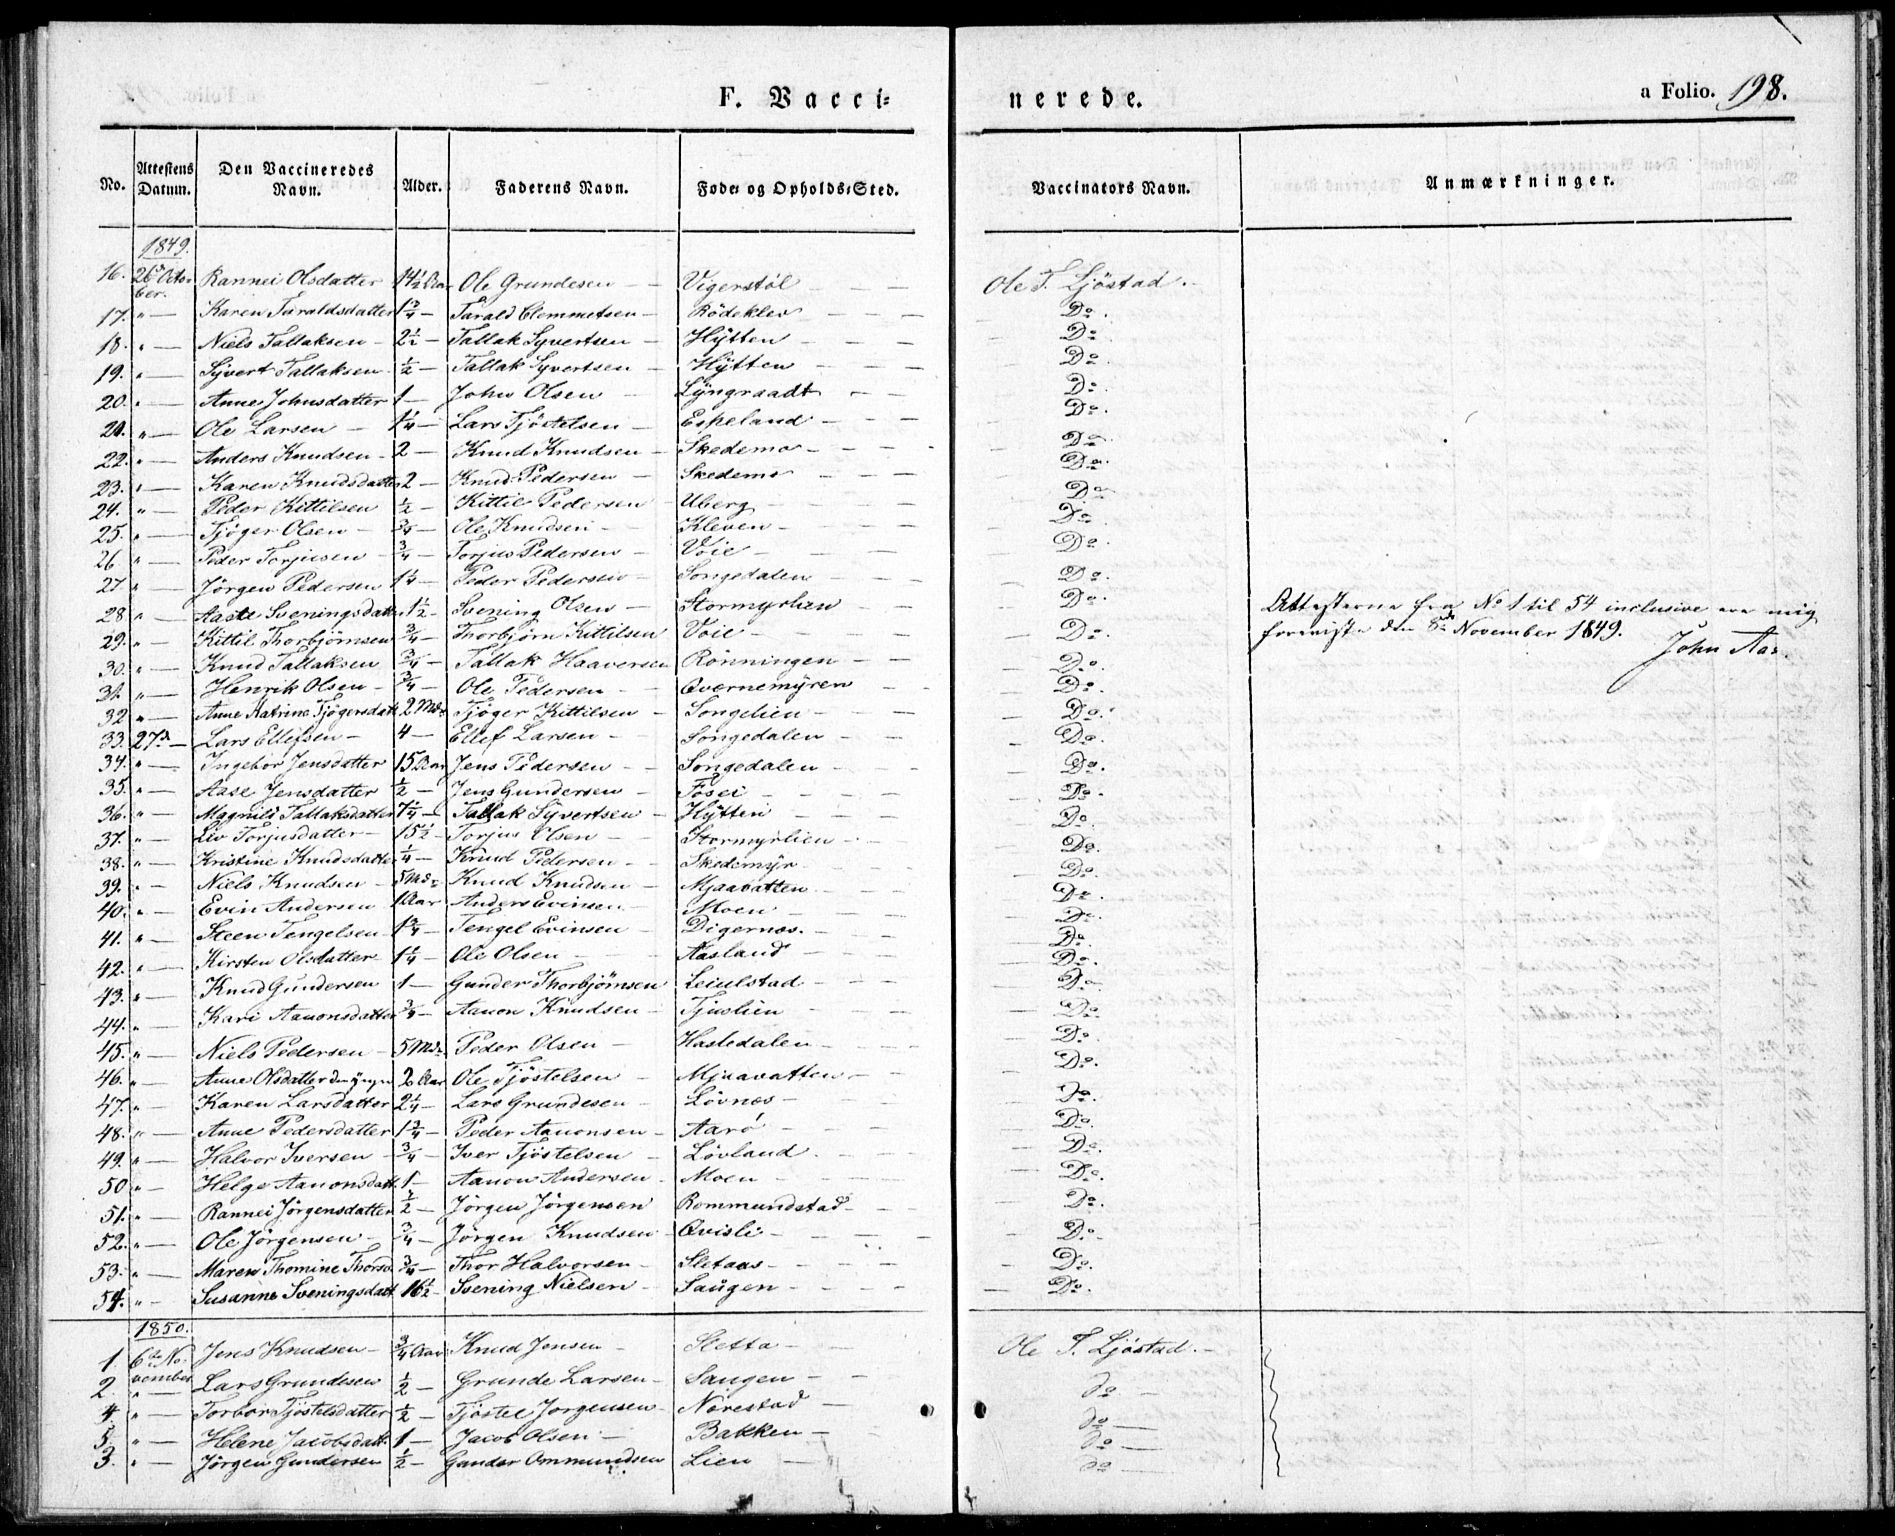 F. Vacci=
nerede.
a Folio. 198.
No. Attestens Datum. Den Vaccineredes Navn. Alder. Faderens Navn. Føde- og Opholds-Sted. Vaccinators Navn. Anmærkninger.
1849.
16. 26 October. Rannei Olsdatter 14½ Aar Ole Grundesen — Vigerstöl — — Ole T. Ljöstad.
17. " — Karen Taraldsdatter 1¾ — Tarald Clemmetsen — Rödeklev — — Do.
18. " — Niels Tallaksen — 2½ — Tallak Syvertsen — Hÿtten — — Do.
19. " — Syvert Tallaksen ½ — Tallak Syvertsen — Hÿtten — — Do.
20. " — Anne Johnsdatter 1 — John Olsen — Lÿngraadt — — Do.
21. " — Ole Larsen — 1¼ — Lars Tjöstelsen — Espeland — — Do.
22. " — Anders Knudsen — 2 — Knud Knudsen — Skedemo — — Do.
23. " — Karen Knudsdatter 2 — Knud Pedersen — Skedemo — — Do.
24. " — Peder Kittilsen ½ — Kittil Pedersen Uberg — — Do.
25. " — Tjöger Olsen — ¾ — Ole Knudsen — Kleven — — Do.
26 " — Peder Torjusen — ¾ — Torjus Pedersen — Voie — — Do.
27 " — Jörgen Pedersen 1¼ — Peder Pedersen — Songedalen — — Do.
28 " — Aaste Sveningsdatt. 1½ — Svening Olsen — Stormyrlien — — Do.
29. " — Kittil Thorbjörnsen ¾ — Thorbjörn Kittilsen Voie — — Do.
30. " — Knud Tallaksen ¾ — Tallak Haaversen Rönningen — — Do.
31. " — Henrik Olsen — ¾ — Ole Pedersen — Qvernemÿren — — Do.
32 " — Anne Katrine Tjögersdatt. 2 Mdr Tjöger Kittilsen — Songelien — — Do.
33. 27de — Lars Ellefsen — 4 — Ellef Larsen — Songedalen — — Do.
34. " — Ingebor Jensdatter 15 Aar Jens Pedersen — Songedalen — — Do.
35. " — Aase Jensdatter ½ — Jens Gundersen — Fosei — — Do.
36. " — Magnild Tallaksdatter 7¼ — Tallak Syvertsen — Hÿtten — — Do.
37. " — Liv Torjusdatter — 15½ — Torjus Olsen — Stormyrlien — — Do.
38. " — Kristine Knudsdatter ¼ — Knud Pedersen — Skedemÿr — — Do.
39. " — Niels Knudsen — 5 Mdr Knud Knudsen — Mjaavatten — — Do.
40. " — Evin Andersen 1 Aar Anders Evinsen — Moen — — Do.
41. " — Steen Tengelsen 1¾ — Tengel Evinsen — Digernæs. — — Do.
42. " — Kirsten Olsdatter 1¼ — Ole Olsen — Aasland — — Do.
43. " — Knud Gundersen 1 — Gunder Thorbjörnsen Leiulstad — — Do.
44. " — Kari Aanonsdatter ¾ — Aanon Knudsen — Tjuslien — — Do.
45. " — Niels Pedersen — 5 Mdr Peder Olsen — Hasledalen — — Do.
46. " — Anne Olsdatter den yngre 2 Aar Ole Tjöstelsen — Mjaavatten — — Do.
47. " — Karen Larsdatter 2¼ — Lars Grundesen — Lövnæs — — Do.
48. " — Anne Pedersdatter 1¾ — Peder Aanonsen — Aarö — — Do.
49. " — Halvor Iversen — ¾ — Iver Tjöstelsen — Lövland — — Do.
50 " — Helge Aanonsdatt. 1 — Aanon Andersen — Moen — — Do.
51. " — Rannei Jörgensdatter ½ — Jörgen Jörgensen Rommundstad — — Do.
52. " — Ole Jörgensen — ¾ — Jörgen Knudsen — Qvisli — — Do.
53. " — Maren Thomine Thorsd. ¾ — Thor Halvorsen — Sletaas — — Do.
54. " — Susanne Sveningsdatt. 16½ — Svening Nielsen — Saugen — — Do.
Attesterne fra No 1 til 54 inclusive ere mig
foreviste den 8de November 1849.
John Aas.
1850.
1. 6te November Jens Knudsen — ¾ Aar Knud Jensen — Sletta — Ole T. Ljöstad. —
2. " — Lars Grundesen ½ — Grunde Larsen — Saugen — do —
4. " — Torbor Tjöstelsdatter ½ — Tjöstel Jorgensen — Norestad — do —
5. " — Helene Jacobsdatt. 1 — Jacob Olsen — Bakken — do —
3. " — Jörgen Gundersen ½ — Gunder Ommundsen Lien — do —